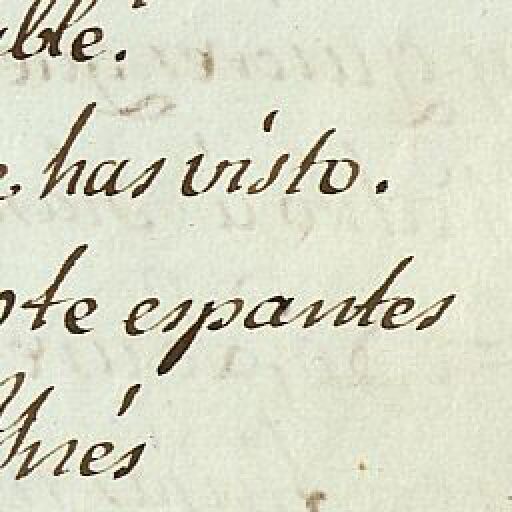 able.
e has visto.
ote espantes
Ynés